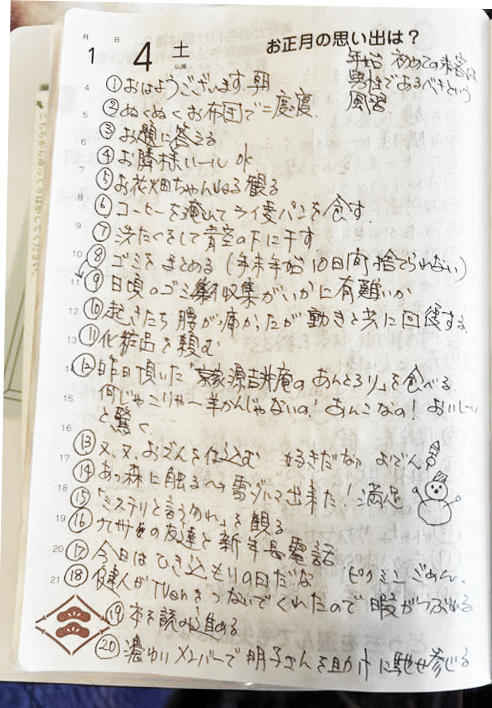 月 日
1 4 土
仏滅
お正月の思い出は?
年始 初めての来客は
男性であるべきという
風習
①おはようございます。朝
②ぬくぬくお布団で二度寝。
③お題に答える
④お隣様いール 水
⑤お花畑ちゃんねる観る
⑥コーヒーを淹れてライ麦パンを食す。
⑦洗たくをして青空の下に干す
⑧ゴミをまとめる(年末年始10日間捨てられない)
⑨日頃のゴミ収集がいかに有難いか
⑩起きたら腰が痛かったが動きと共に回復する
⑪化粧品を頼む
⑫昨日頂いた「京家源吉兆庵のあんとろり」を食べる
何じゃこりゃ〜羊かんじゃないの!あんこなの!おいしい
と驚く
⑬又、又、おでんを仕込む 好きだなぁ おでん
⑭あつ森に触る→雪ダルマ出来た!満足
⑮「ミステリと言う勿れ」を観る
⑯九州の友達と新年長電話
⑰今日はひきこもりの日だな ピクミンごめん、
⑱健人がTVonきつないでくれたので暇がつぶれる
⑲本を読み進める
⑳濃ゆいメンバーで明子さんを助けに馳せ参じる
4
5
6
7
8
9
10
11
12
13
14
15
16
17
18
19
20
21